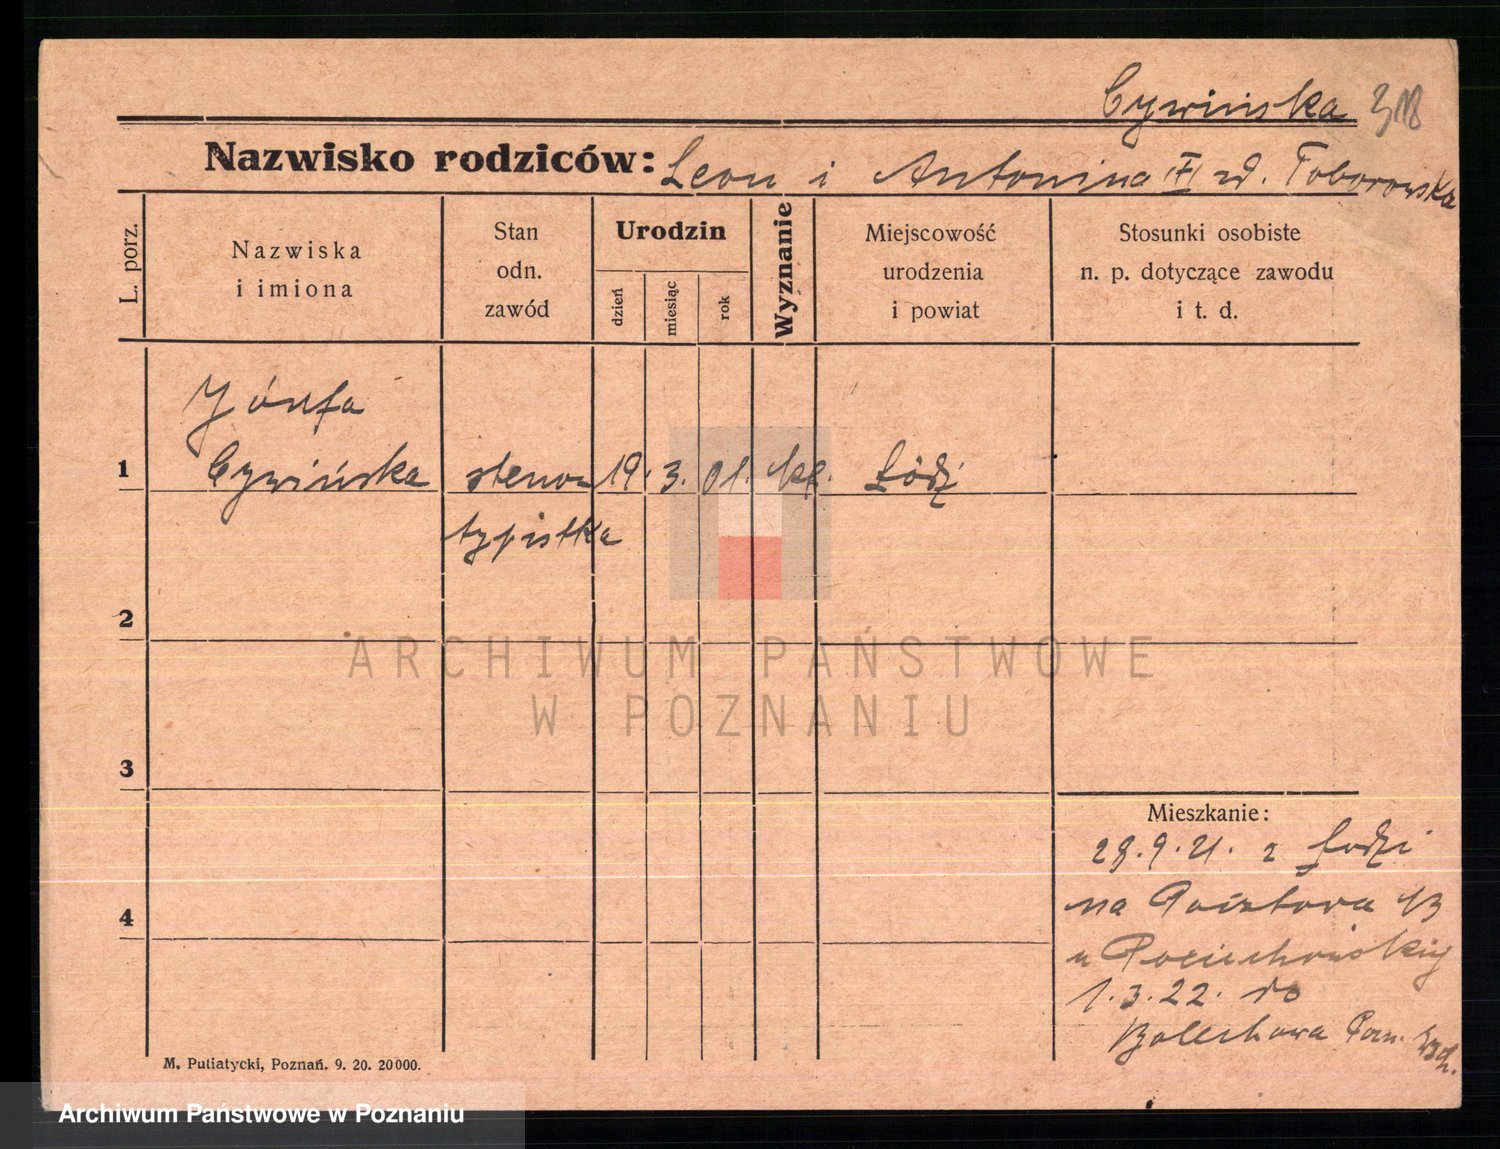 Cywińska
Nazwisko rodziców: Leon i Antonina zd. Toborowska
L. porz.
Nazwiska
i imiona
Stan
odn.
zawód
Urodzin
dzień
miesiąc
rok
Wyznanie
Miejscowość
urodzenia
i powiat
Stosunki osobiste
n. p. dotyczące zawodu
i t. d.
Józefa
1 Cywińska steno 19. 3. 01. kt. Łódź
typistka
2
3
4
Mieszkanie:
28.9.21. z Łodzi
na
u
1.3.22. do
Bolechowa Pozn. Wsch.
M. Putiatycki, Poznań. 9. 20. 20000.
ARCHIWUM PAŃSTWOWE
W POZNANIU
Archiwum Państwowe w Poznaniu